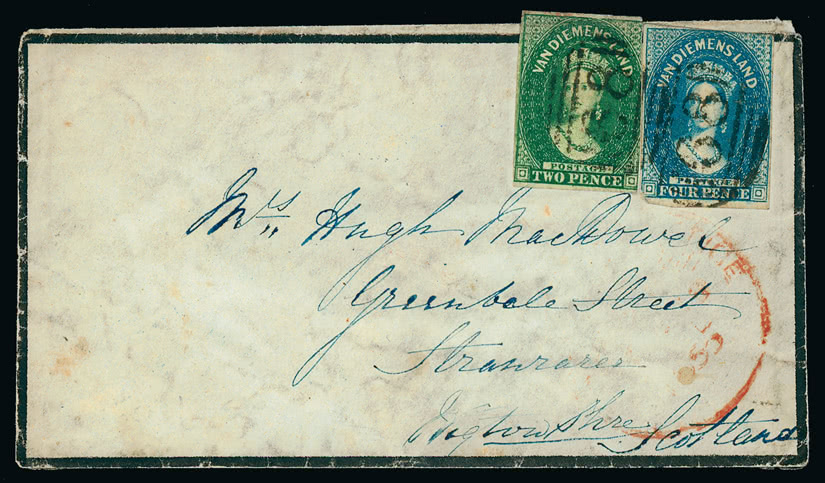 VAN DIEMENS LAND
POSTAGE
TWO PENCE
VAN DIEMENS LAND
POSTAGE
FOUR PENCE
Mrs Hugh MacDowel
Greenbale Street
Stranraer
Wigtow Shre Scotland